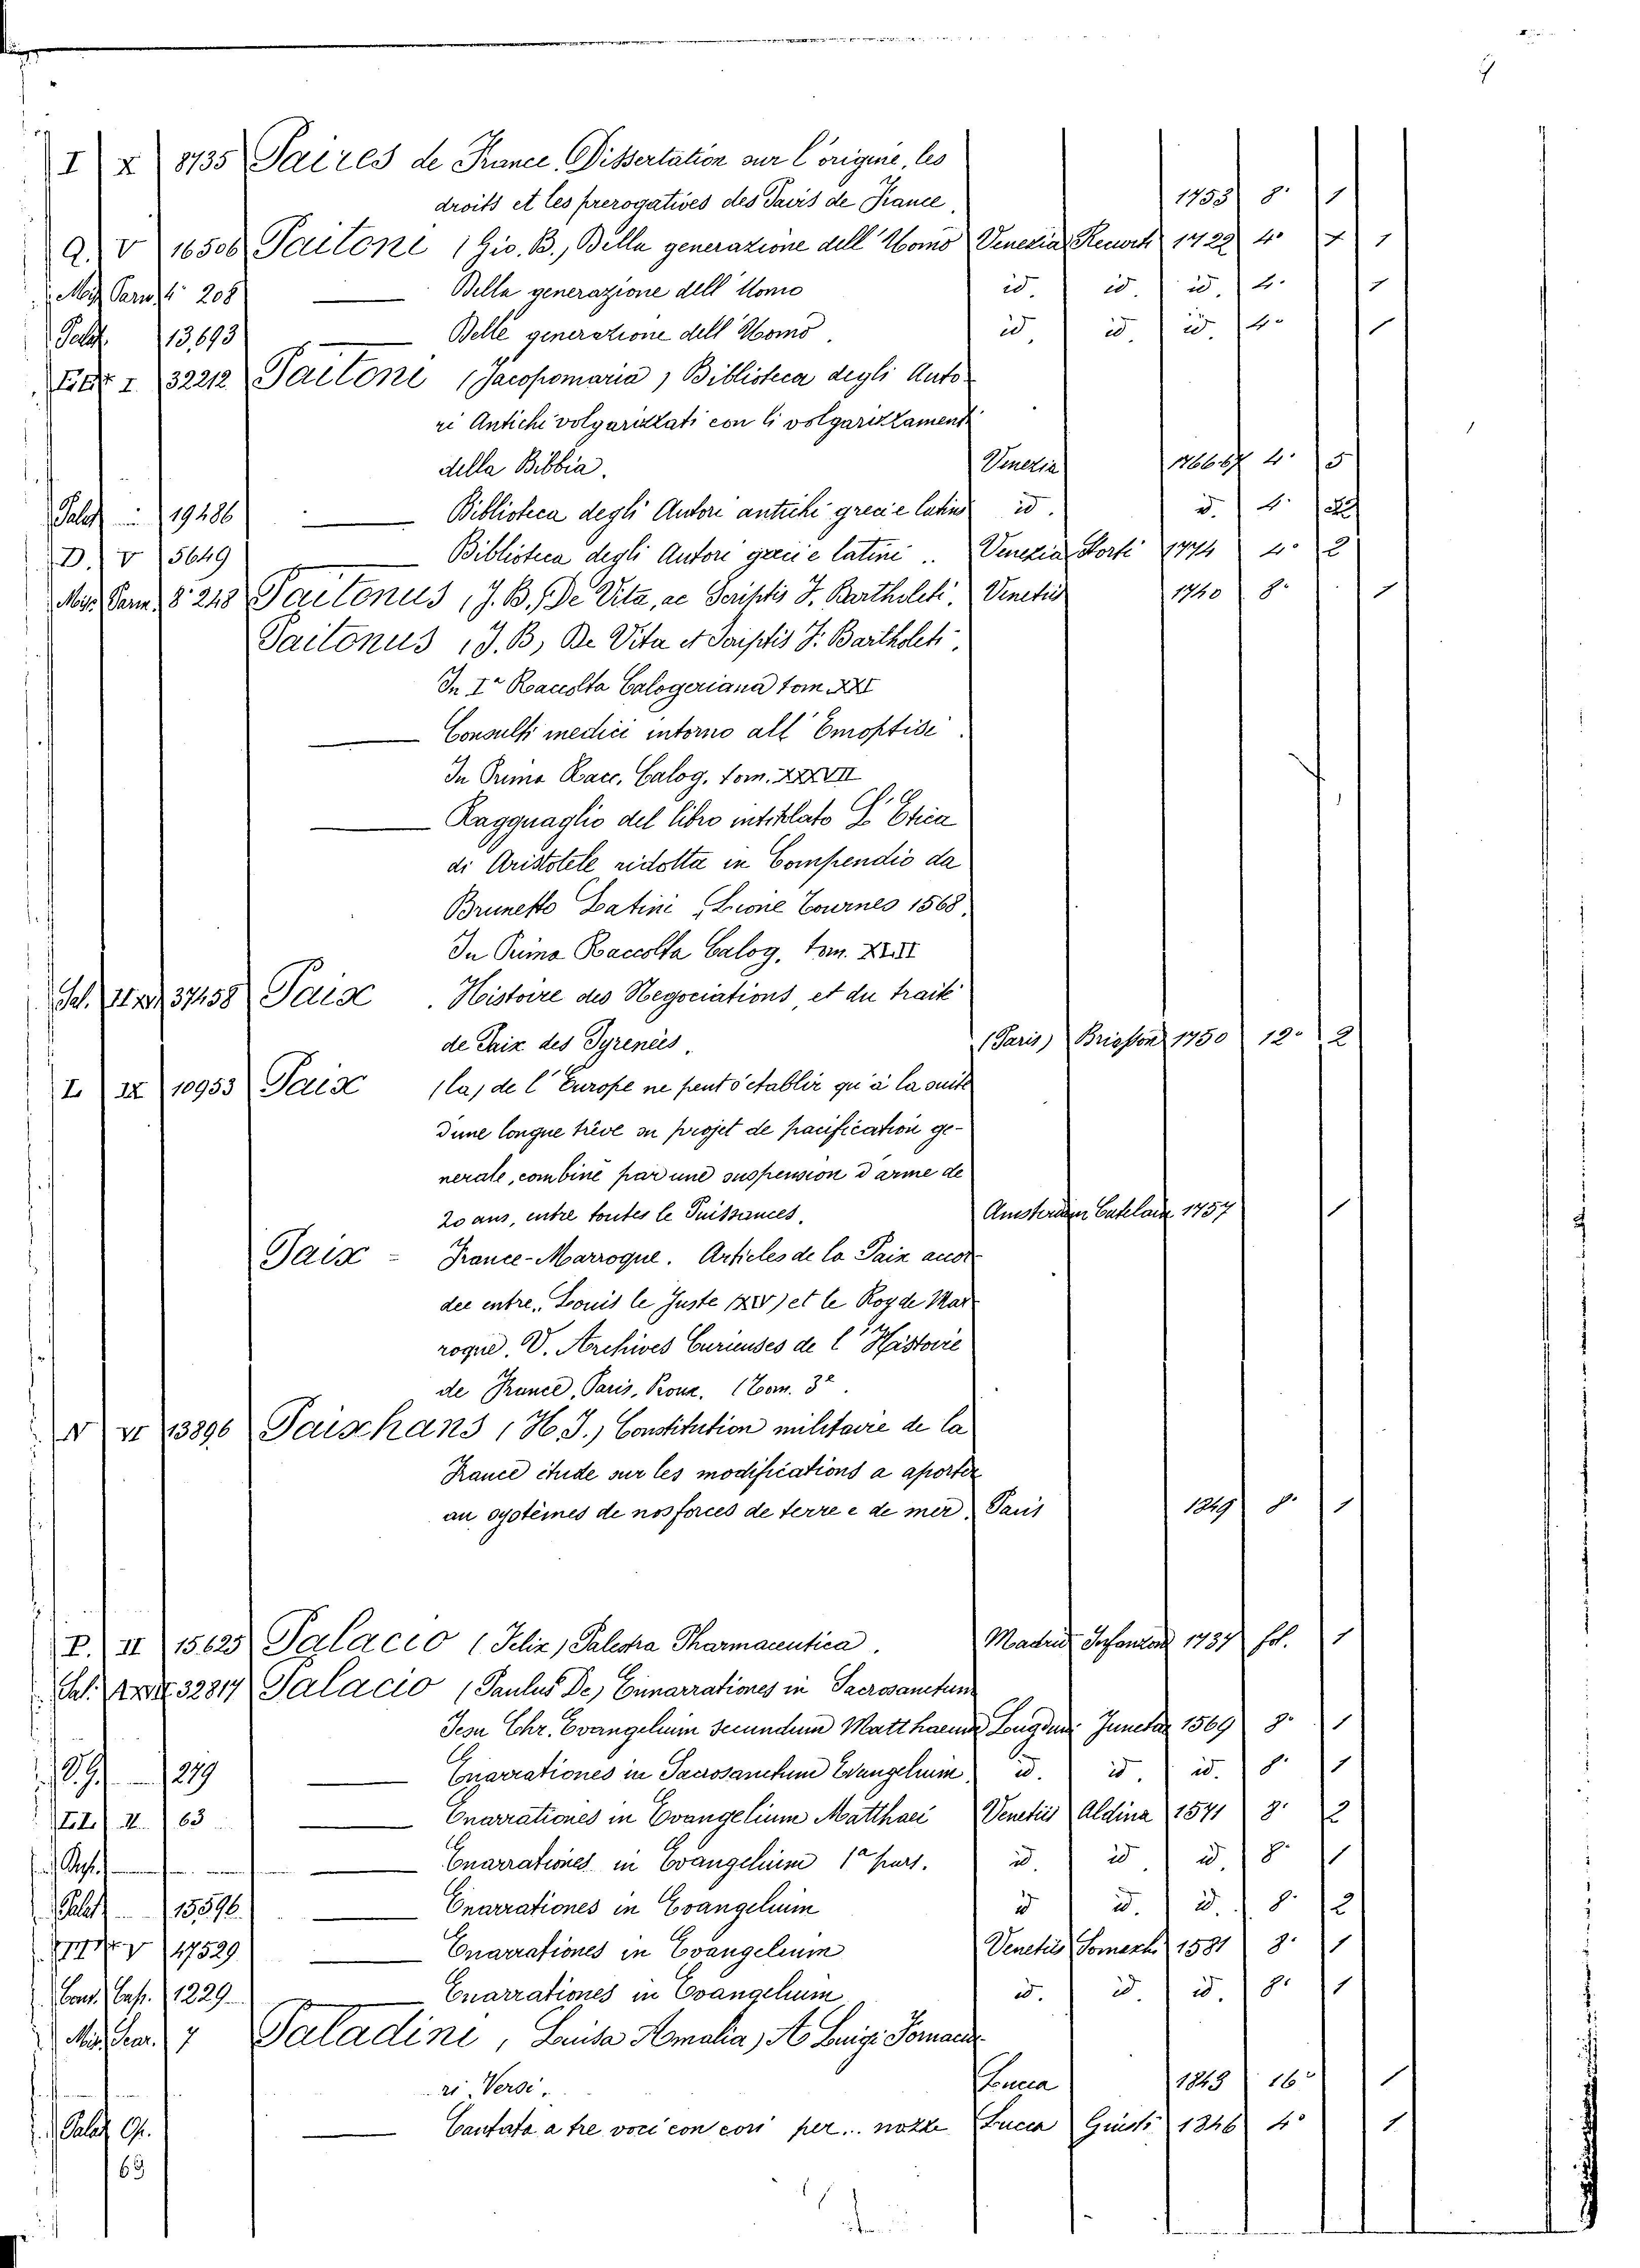 I X 8735 Paires de France. Dissertation sur l'origine, les
droits et les prerogatives des Pairs de France. 1753 8° 1
Q. V 16506 Paitoni (Gio. B.) Della generazione dell'Uomo Venezia 1722 4° 1
Misc. Parm. 4° 208 Della generazione dell'Uomo id. id. id. 4° 1
Palat. 13,693 Delle generazione dell'Uomo. id. id. id. 4° 1
I. 32212 Paitoni (Jacopomaria) Biblioteca degli Auto-
ri Antichi volgarizzati con li volgarizzamenti
della Bibbia. Venezia 1766-67 4° 5
Palat. 19486 Biblioteca degli Autori antichi greci e latini id. id. 4°
D. V 5649 Biblioteca degli Autori greci e latini .. Venezia Storti 1774 4° 2
Misc. Parm. 8° 248 Paitonus (J. B.) De Vita, ac Scriptis J. Bartholeti. Venetiis 1740 8° 1
Paitonus (J. B) De Vita et Scriptis J. Bartholeti.
In Iª Raccolta Calogeriana tom XXI
Consulti medici intorno all'Emoptisi.
In Prima Racc. Calog. tom. XXXVII
Ragguaglio del libro intitolato L'Etica
di Aristotele ridotta in Compendio da
Brunetto Latini, Lione Tournes 1568.
In Prima Raccolta Calog. tom. XLII
Sal. 37458 Paix . Histoire des Negociations, et du traité
de Paix des Pyrenées. (Paris) Briasson 1750 12° 2
L IX 10953 Paix (la) de l'Europe ne peut s'etablir qu'à la suite
d'une longue trève ou projet de pacification ge-
nerale, combiné par une suspension d'arme de
20 ans, entre toutes le Puissances. Amsterdam Catelain 1757 1
Paix - France-Marroque. Articles de la Paix accor-
dée entre.. Louis le Juste et le Roy de Mar-
roque. V. Archives Curieuses de l'Histoire
de France, Paris, (Tom. 3º.
N VI 13896 Paixhans (H. J.) Constitution militaire de la
France étude sur les modifications a aporter
au systèmes de nos forces de terre e de mer. Paris 1849 8° 1
P. II 15625 Palacio (Felix) Palestra Pharmaceutica. Madrid 1737 fol. 1
Sal. 32817 Palacio (Paulus De) Ennarrationes in Sacrosanctum
Jesu Chr. Evangelium secundum Matthaeum Lougduni Junctae 1569 8° 1
279 Enarrationes in Sacrosanctum Evangelium. id. id. id. 8° 1
II. 63 Enarrationes in Evangelium Matthaei Venetiis Aldina 1571 8° 2
Enarrationes in Evangelium 1ª pars. id. id id. 8° 1
Palat. 15596 Enarrationes in Evangelium id id. id. 8° 2
V 47529 Enarrationes in Evangelium Venetiis 1581 8° 1
Cond. Cass. 1229 Enarrationes in Evangelium id. id. id. 8° 1
Misc. 7 Paladini, Luisa Amalia) A Luigi Fornacia-
ri Versi. Lucca 1843 16° 1
Palat. Gr. Cantata a tre voci con cori per... nozze Lucca Giusti 1846 4° 1
63